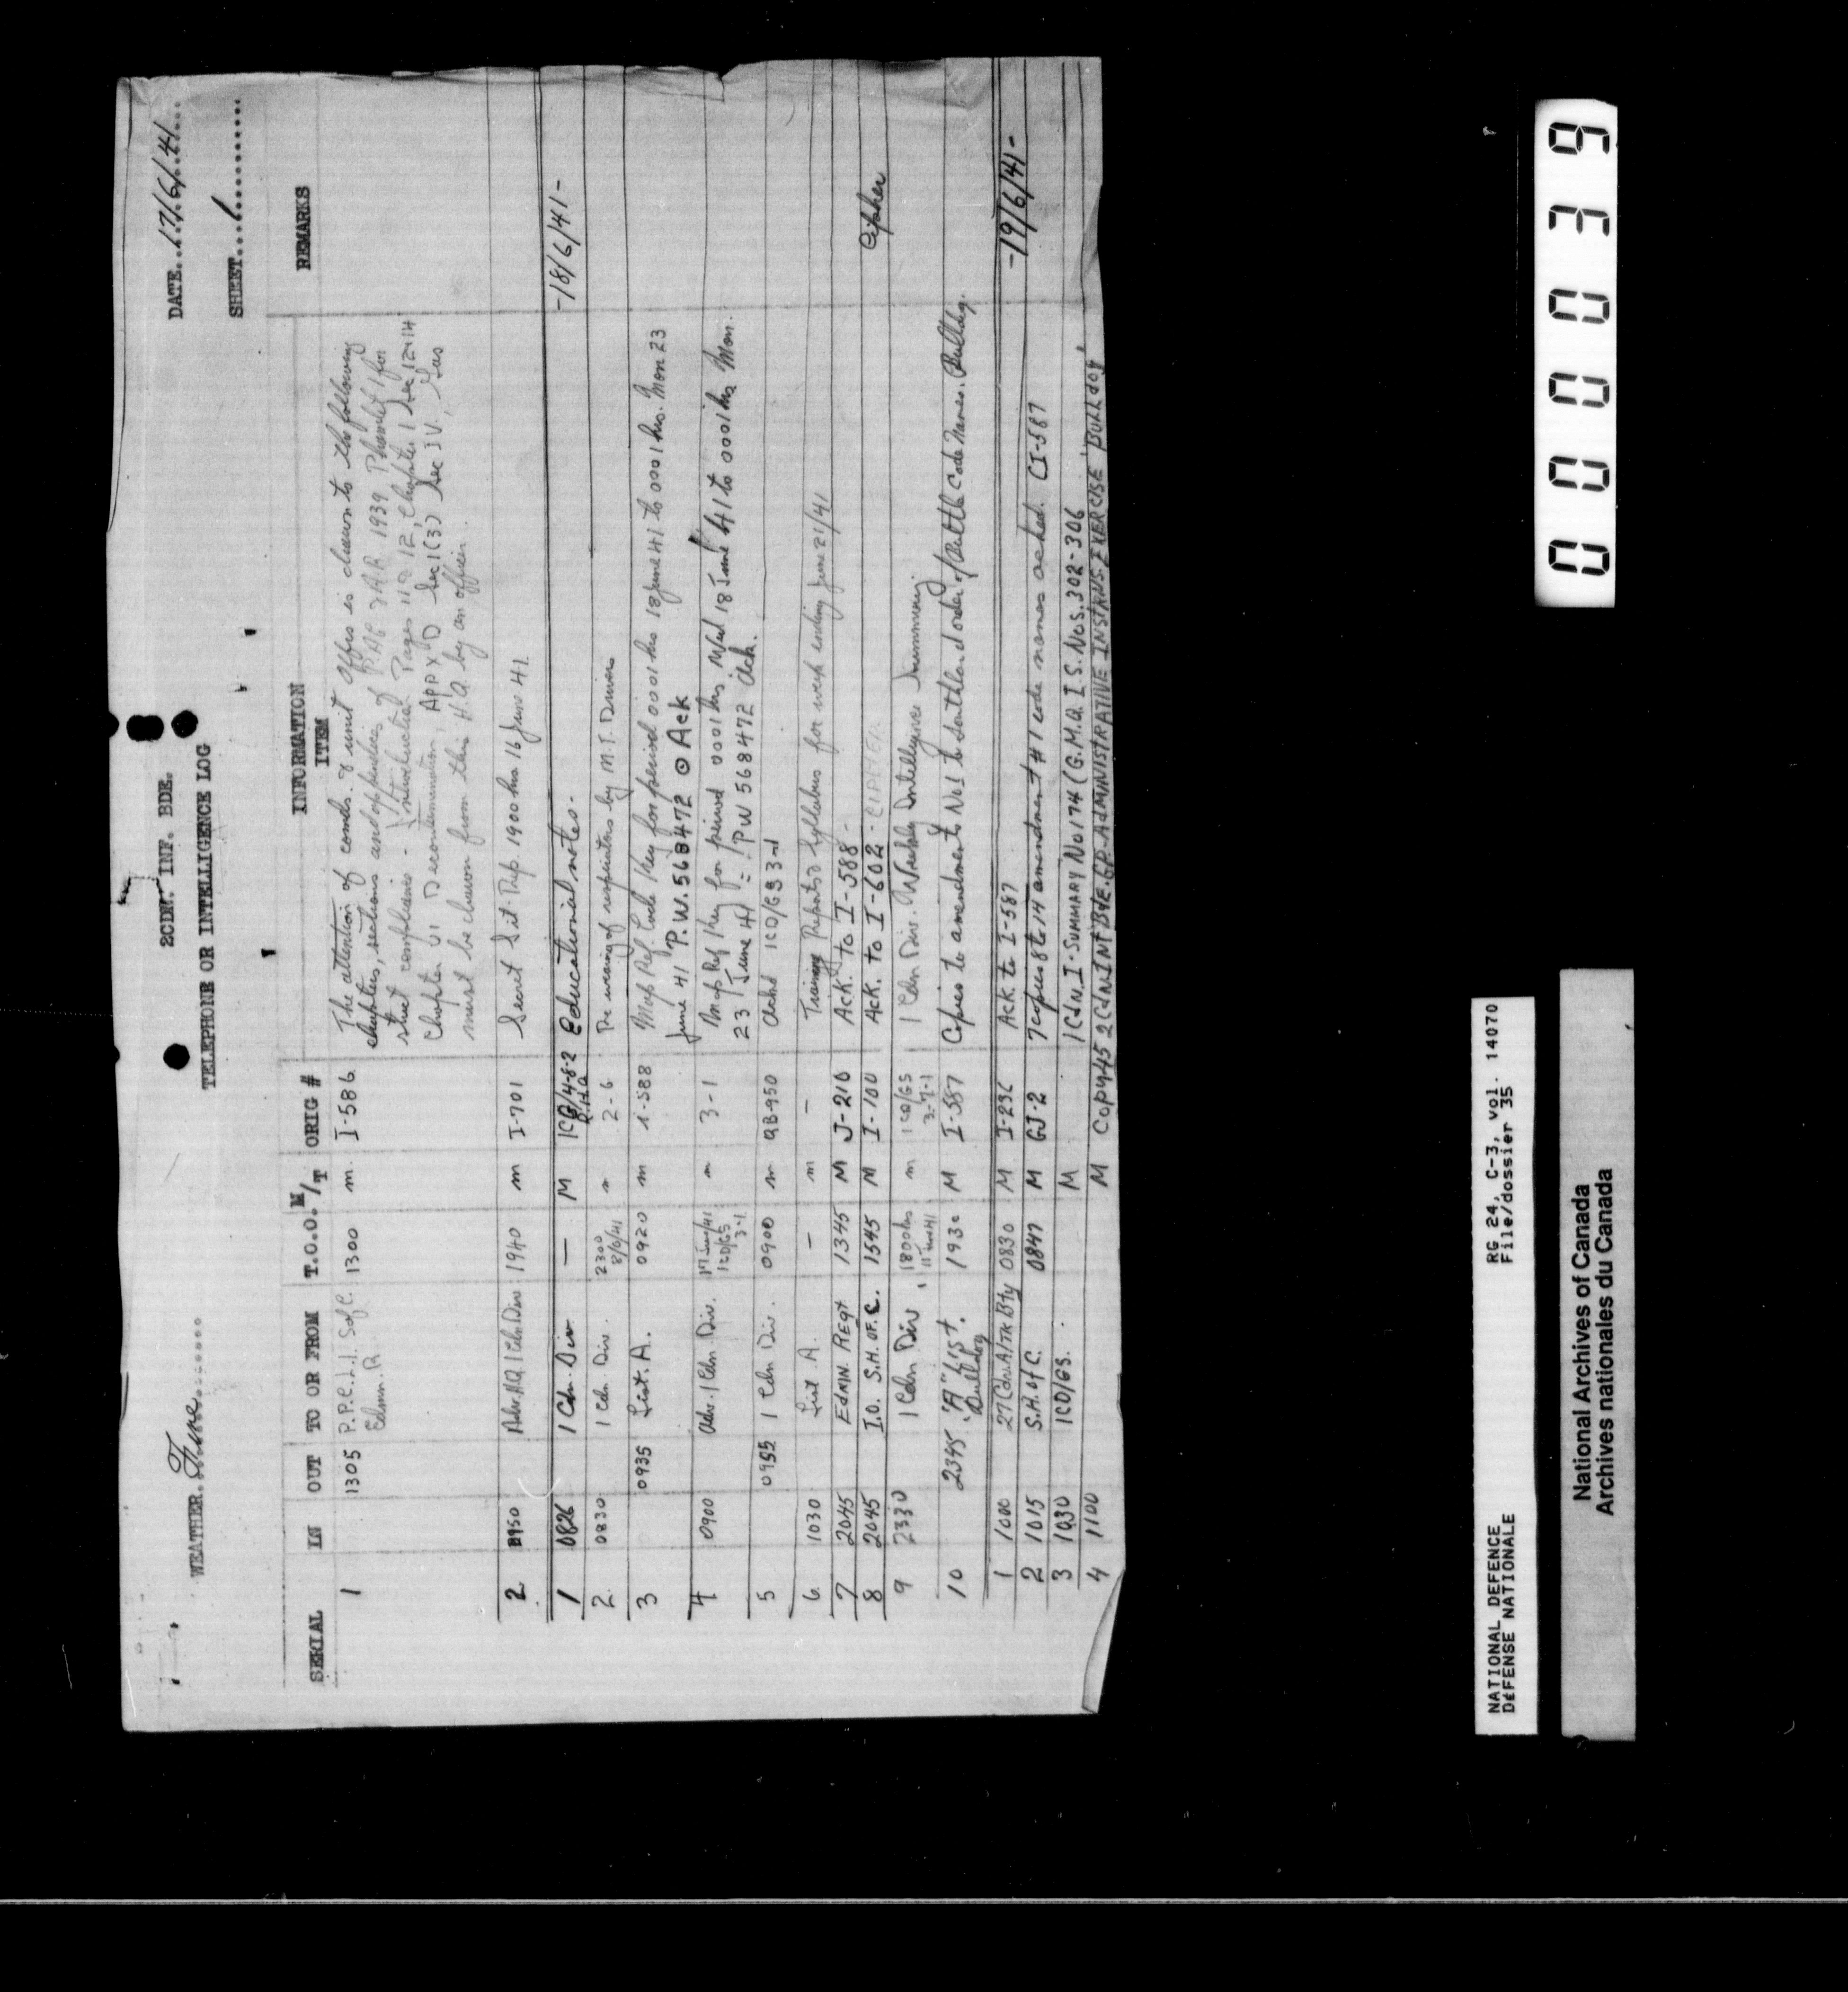 2CDN. INF. BDE.
TELEPHONE OR INTELLIGENCE LOG
WEATHER. Fine
DATE. 17/6/41
SHEET. 1
SERIAL IN OUT TO OR FROM T.O.O. M/T ORIG # INFORMATION ITEM REMARKS
1 1305 P.P.C.L.I. S of C. 1300 m. I-586 The attention of comds. & unit offrs is drawn to the following
Edmn. R chapters, sections and appendices of 1939 Phamlet 1 for
strict compliance - Introduction Pages 11 12, Chapter 1 Sec 12+14
Chapter VI Decontamination, APPX D Sec 1(3) Sec IV, Gas
must be drawn from this H.Q. by an officer.
2 1950 Adv. HQ 1 Cdn Div 1940 m I-701 Secret Sit. Rep. 1900 hrs 16 June 41.
-18/6/41-
1 0826 1 Cdn. Div — M 1CD/4-8-2 Educational notes.
2. 0830 1 Cdn. Div. 2300 8/6/41 m 2-6 The wearing of respirators by M.T. Drivers
3 0935 List. A. 0920 m I-588 Map Ref. Code Key for period 0001 hrs 18 June 41 to 0001 hrs. Mon 23
June 41 P.W. 568472 Ack
4 0900 Adv. 1 Cdn Div. 17 June/41 1CD/GS 3-1 m 3-1 Map Ref Key for period 0001 hrs Wed 18 June 41 to 0001 hrs Mon.
23 June 41 = PW 568472 Ack.
5 0955 1 Cdn Div. 0900 m QB-950 1CD/GS 3-1
6 1030 List A. — m — Training Reports & Syllabus for week ending June 21/41
7 2045 EDMN. REGT 1345 M J-210 Ack. to I-588-
8 2045 I.O. S.H. OF. C. 1545 M I-100 Ack. to I-602 - CIPHER Cipher
9 2330 1 Cdn Div 1800 hrs m 1CD/GS 3-7-1 1 Cdn Div. Weekly Intelligence Summary.
10 2345 "A" List. Bulldog 1930 M I-587 Copies to amendment No 1 to Southland order of Battle Code Names. Bulldog.
-19/6/41-
1 1000 27 Cdn A/TK Bty 0830 M I-296 Ack. to I-587
2 1015 S.H. of C. 0847 M GJ-2 7 copies 8 to 14 amendment #1 code names acked. CI-587
3 1030 1CD/GS. M 1 Cdn. I-SUMMARY No 174 (G.M.Q. I.S. Nos. 302-306
4 1100 M Copy 45 2 Cdn INF Bde. GP. ADMINISTRATIVE INSTRNS EXERCISE 'BULLDOG'
000039
NATIONAL DEFENCE RG 24, C-3, vol. 14070
DÉFENSE NATIONALE File/dossier 35
National Archives of Canada
Archives nationales du Canada